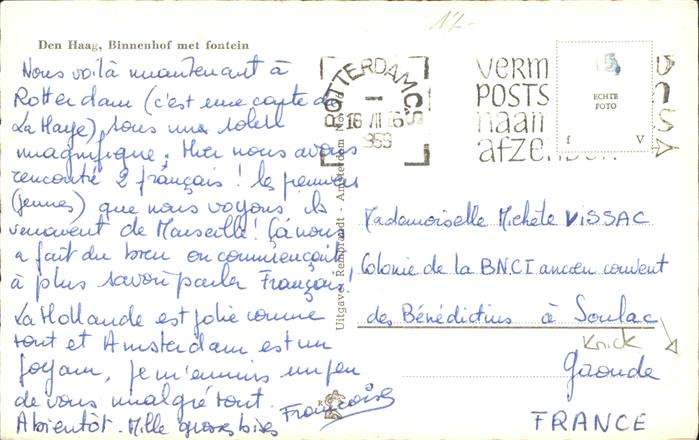 12.-
Den Haag, Binnenhof met fontein
Nous voilà maintenant à
Rotterdam (c'est une carte de
La Haye), sous un soleil
magnifique. Hier nous avons
rencontré 2 français ! les premiers
(jeunes) que nous voyons ils
venaient de Marseille ! Ça nous
a fait du bien on commençait
à plus savoir parler Français,
La Hollande est jolie comme
tout et Amsterdam est un
joyau, je m'ennuis un peu
de vous malgré tout.
A bientôt. Mille grosses bises
Françoise
Uitgave Rembrandt - Amsterdam
ROTTERDAM C.S.
16 VII 16
1963
VERM
POSTS
naam
afzen
ECHTE
FOTO
f V
Mademoiselle Michèle VISSAC
Colonie de la BNCI ancien couvent
des Bénédictins à Soulac
Knick
Gironde
FRANCE